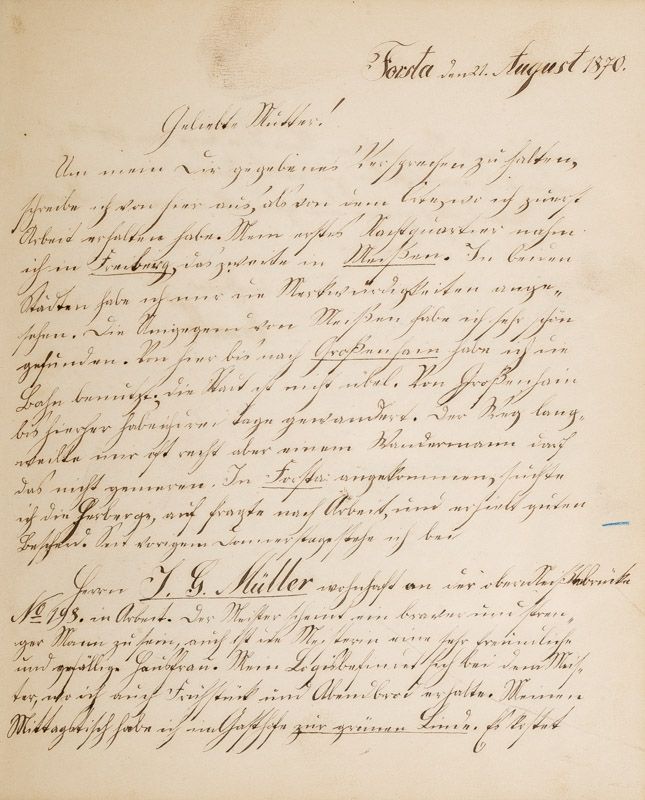 Forsta den 21. August 1870.
Geliebte Mutter!
Um mein Dir gegebenes Versprechen zu halten,
schreibe ich von hier aus, als von dem Orte, wo ich zuerst
Arbeit erhalten habe. Mein erstes Nachtquartier nahm
ich in Freiberg, das zweite in Meißen. In beiden
Städten habe ich mir die Merkwürdigkeiten ange-
sehen. Die Umgegend von Meißen habe ich sehr schön
gefunden. Von hier bis nach Großenhain habe ich die
Bahn benutzt. Die Stadt ist nicht übel. Von Großenhain
bis hierher habe ich drei Tage gewandert. Der Weg lang-
weilte mir oft recht aber einem Wandermann darf
das nicht genieren. In Forsta angekommen, suchte
ich die Herberge, auf fragte nach Arbeit, und erhielt guten
Bescheid. Seit vorigem Donnerstage stehe ich bei
Herrn J. G. Müller wohnhaft an der obern Neißbrücke
No 198. in Arbeit. Der Meister scheint ein braver und stren-
ger Mann zu sein, auch ist die Meisterin eine sehr freundliche
und gefällige Hausfrau. Mein Logis befindet sich bei dem Meis-
ter, wo ich auch Frühstück und Abendbrod erhalte. Meinen
Mittagstisch habe ich im Gasthofe zur grünen Linde. Es kostet